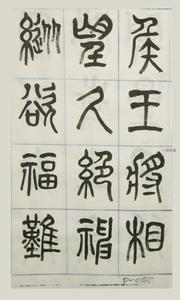 侯王將相
望久絕禍
欲福難
P-045